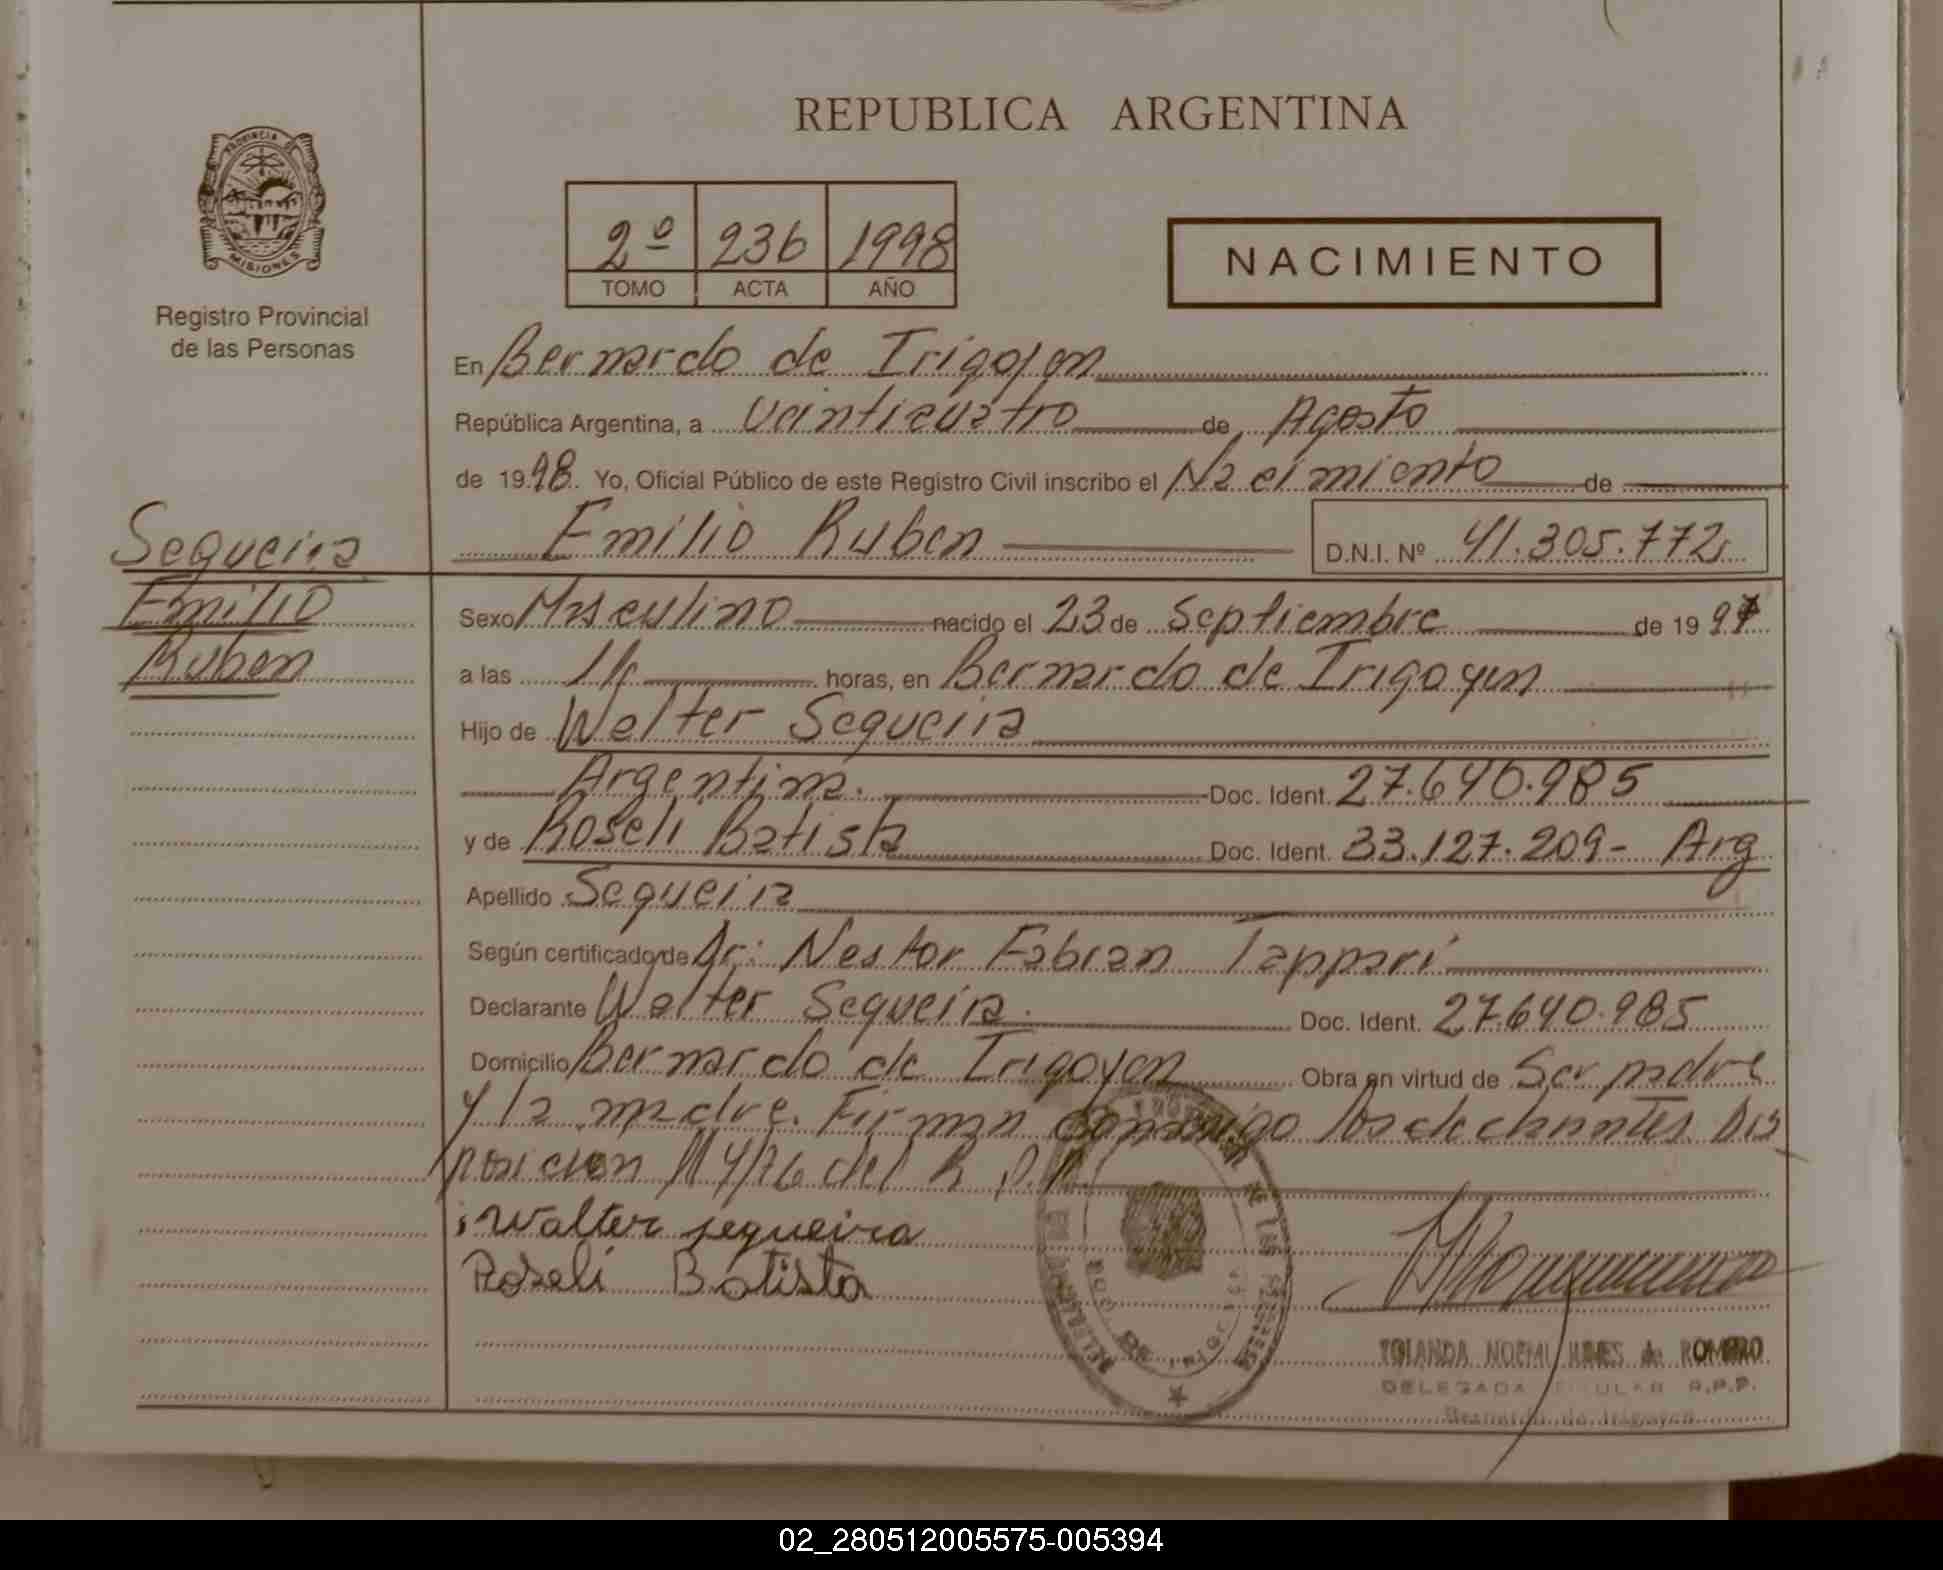 REPUBLICA ARGENTINA
PROVINCIA DE
MISIONES
Registro Provincial
de las Personas
2º 236 1998
TOMO ACTA AÑO
NACIMIENTO
En Bernardo de Irigoyen
República Argentina, a Veinticuatro de Agosto
de 1998. Yo, Oficial Público de este Registro Civil inscribo el Nacimiento de
Emilio Ruben D.N.I. Nº 41.305.772
Sequeira
Emilio
Ruben
Sexo Masculino nacido el 23 de Septiembre de 1997
a las horas, en Bernardo de Irigoyen
Hijo de Walter Sequeira
Argentina. Doc. Ident. 27.640.985
y de Roseli Batista Doc. Ident. 33.127.209- Arg
Apellido Sequeira
Según certificado de Dr: Nestor Fabian Tappari
Declarante Walter Sequeira. Doc. Ident. 27.640.985
Domicilio Bernardo de Irigoyen Obra en virtud de Ser padre
y la madre. Firman conmigo los declarantes. Dis
posicion del R.P.P.
Walter sequeira
Roseli Batista
YOLANDA NOEMI de ROMERO
DELEGADA TITULAR R.P.P.
Bernardo de Irigoyen
02_280512005575-005394